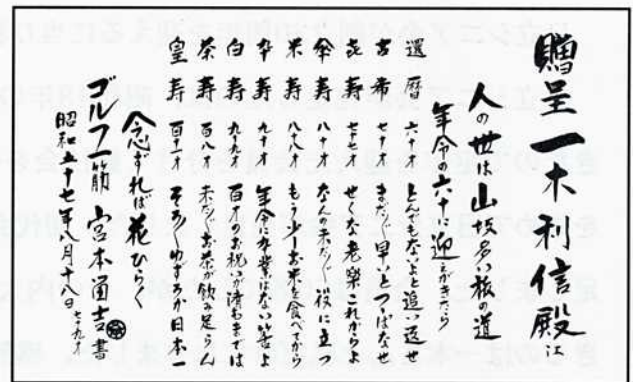 贈呈 一木利信殿江
人の世は山坂多い旅の道
年令の六十に迎えがきたら
還暦 六十才 とんでもないよと追い返せ
古希 七十才 まだまだ早いとつっぱなせ
㐂寿 七十七才 せくな老楽これからよ
傘寿 八十才 なんの未だ未だ役に立つ
米寿 八十八才 もう少しお米を食べてから
卆寿 九十才 年令に卆業はない筈よ
白寿 九十九才 百才のお祝いが済むまでは
茶寿 百八才 未だ未だお茶が飲み足らん
皇寿 百十一才 そろそろゆずろうか日本一
念ずれば花ひらく
ゴルフ一筋 宮本留吉書
昭和五十七年八月十八日 七十九才